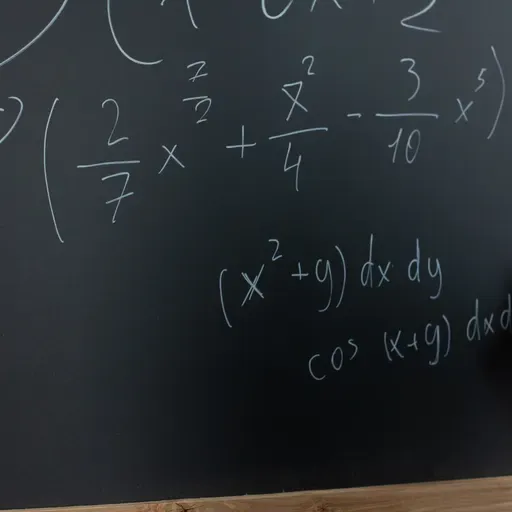 (2/7 x^(7/2) + x^2/4 - 3/10 x^5)
(x^2+y) dx dy
cos (x+y) dx d